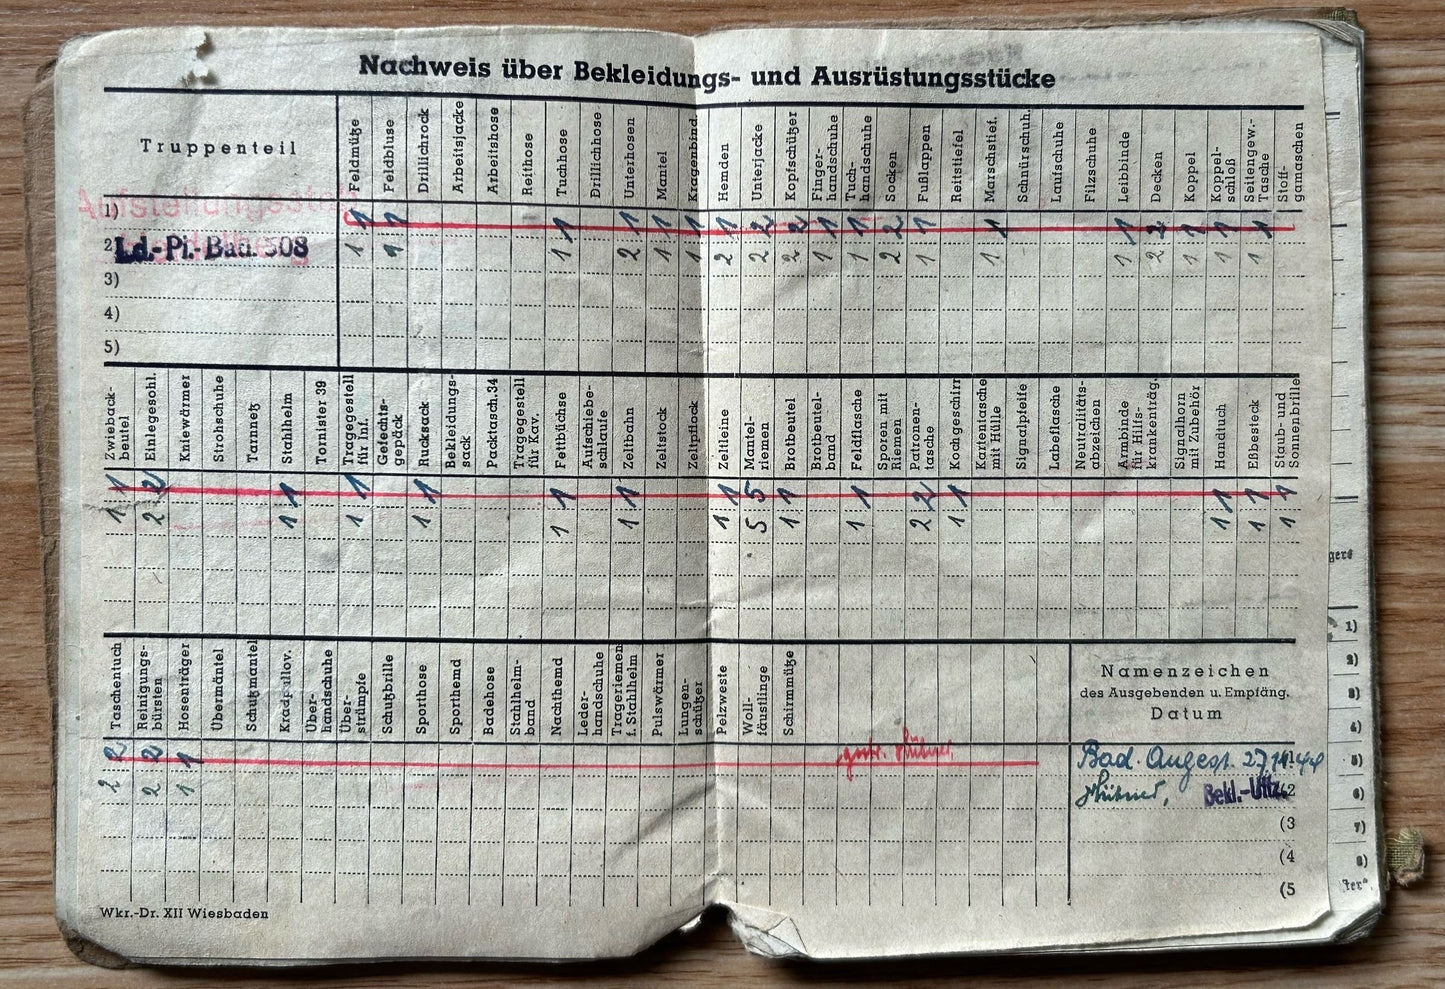 Nachweis über Bekleidungs- und Ausrüstungsstücke
Truppenteil
Feldmütze
Feldbluse
Drillichrock
Arbeitsjacke
Arbeitshose
Reithose
Tuchhose
Drillichhose
Unterhosen
Mantel
Kragenbind.
Hemden
Unterjacke
Kopfschützer
Finger-
handschuhe
Tuch-
handschuhe
Socken
Fußlappen
Reitstiefel
Marschstief.
Schnürschuh.
Laufschuhe
Filzschuhe
Leibbinde
Decken
Koppel
Koppel-
schloß
Seitengew.-
Tasche
Stoff-
gamaschen
1) 1 1 1 1 1 1 1 2 2 1 1 2 1 1 1 2 1 1 1
2) Ld.-Pi.-Bau. 508 1 1 1 2 1 1 2 2 2 1 1 2 1 1 1 2 1 1 1
3)
4)
5)
Zwieback-
beutel
Einlegesohl.
Kniewärmer
Strohschuhe
Tarnnetz
Stahlhelm
Tornister 39
Tragegestell
für Inf.
Gefechts-
gepäck
Rucksack
Bekleidungs-
sack
Packtasch. 34
Tragegestell
für Kav.
Fettbüchse
Aufschiebe-
schlaufe
Zeltbahn
Zeltstock
Zeltpflock
Zeltleine
Mantel-
riemen
Brotbeutel
Brotbeutel-
band
Feldflasche
Sporen mit
Riemen
Patronen-
tasche
Kochgeschirr
Kartentasche
mit Hülle
Signalpfeife
Labeflasche
Neutralitäts-
abzeichen
Armbinde
für Hilfs-
krankenträg.
Signalhorn
mit Zubehör
Handtuch
Eßbesteck
Staub- und
Sonnenbrille
1 2 1 1 1 1 1 1 5 1 1 2 1 1 1 1
1 2 1 1 1 1 1 1 5 1 1 2 1 1 1 1
Taschentuch
Reinigungs-
bürsten
Hosenträger
Übermäntel
Schutzmantel
Kradpullov.
Über-
handschuhe
Über-
strümpfe
Schutzbrille
Sporthose
Sporthemd
Badehose
Stahlhelm-
band
Nachthemd
Leder-
handschuhe
Trageriemen
f. Stahlhelm
Pulswärmer
Lungen-
schützer
Pelzweste
Woll-
fäustlinge
Schirmmütze
Namenzeichen
des Ausgebenden u. Empfäng.
Datum
2 2 1 gestr. Hübner
2 2 1
Bad. Angest.
Hübner, Bekl.-Uffz. (2
(3
(4
(5
Wkr.-Dr. XII Wiesbaden
1)
2)
3)
4)
5)
6)
7)
8)